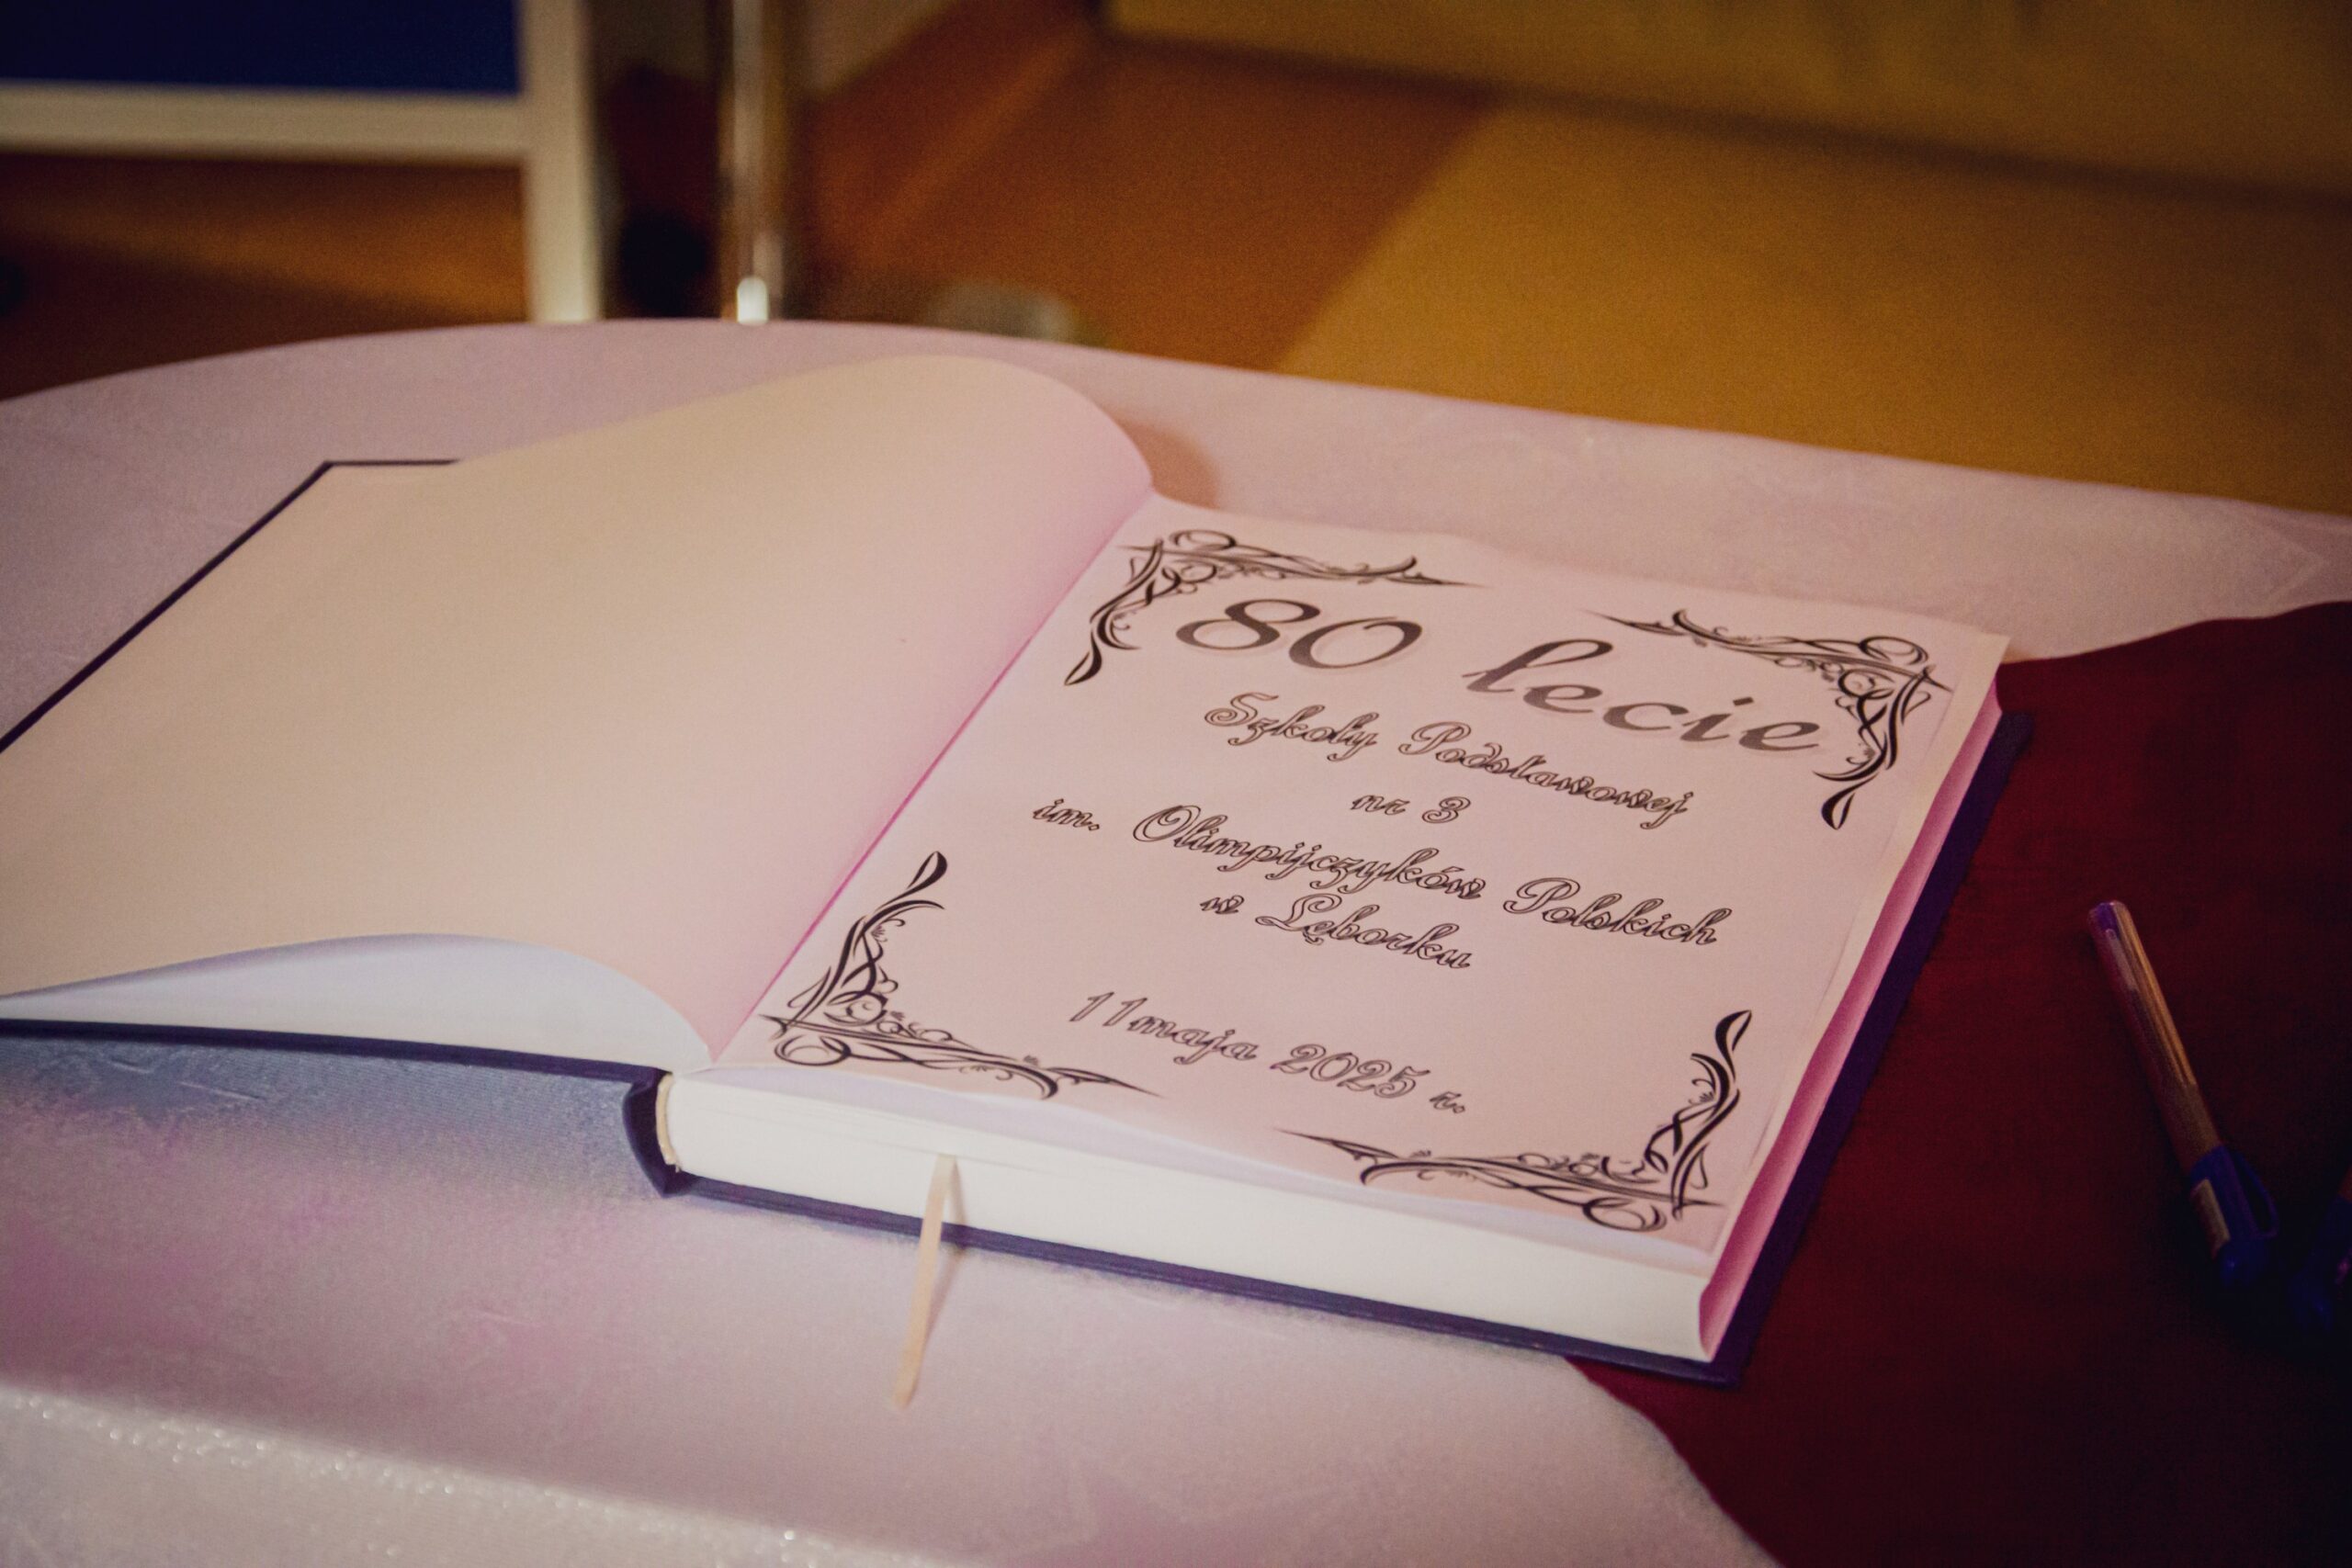 80 lecie
Szkoły Podstawowej
nr 3
im. Olimpijczyków Polskich
w Lęborku
11maja 2025 r.